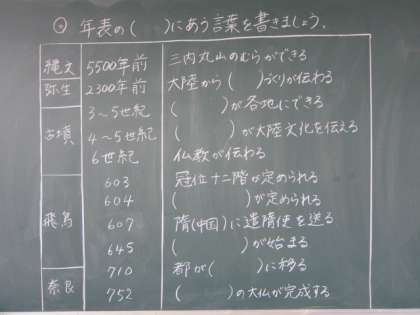 ② 年表の( )にあう言葉を書きましょう。
縄文 5500年前 三内丸山のむらができる
弥生 2300年前 大陸から( )づくりが伝わる
古墳 3〜5世紀 ( )が各地にできる
4〜5世紀 ( )が大陸文化を伝える
6世紀 仏教が伝わる
飛鳥 603 冠位十二階が定められる
604 ( )が定められる
607 隋(中国)に遣隋使を送る
645 ( )が始まる
奈良 710 都が( )に移る
752 ( )の大仏が完成する